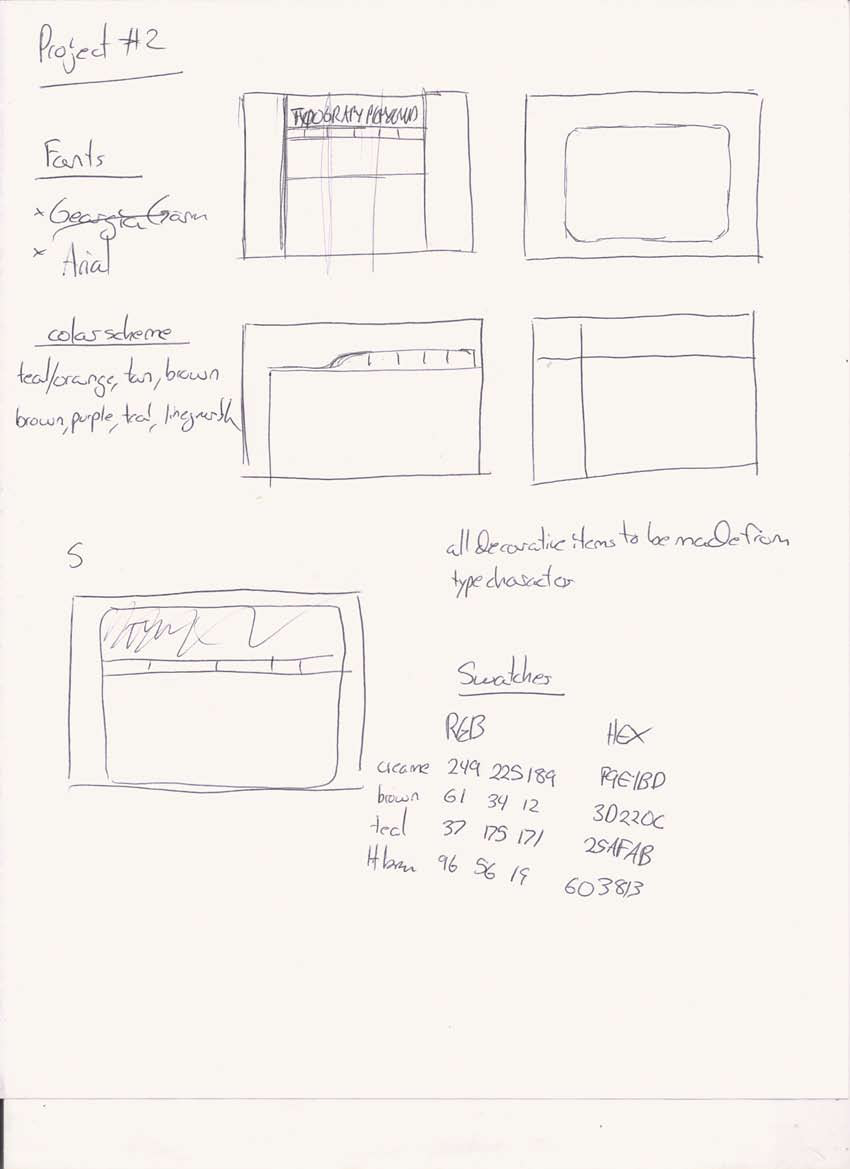 Project #2
TYPOGRAPY
Fonts
x Georgia Garm
x Arial
color scheme
teal/orange, tan, brown
brown, purple, teal,
all decorative items to be made from
type character
S
Swatches
RGB HEX
creame 249 225 189 F9E1BD
brown 61 34 12 3D220C
teal 37 175 171 25AFAB
lt brwn 96 56 19 603813